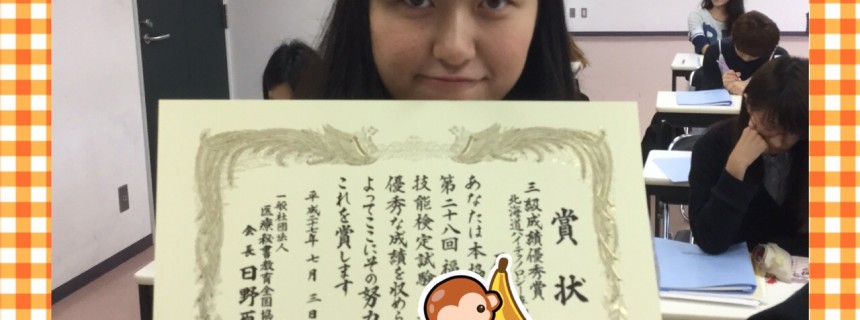 賞状
三級成績優秀賞
北海道ハイテクノロジー
あなたは本協
第二十八回 福
技能検定試験
優秀な成績を収めら
よってここにその努力
これを賞します
平成二十七年 七月 三日
一般社団法人
医療秘書教育全国協
会長 日野原